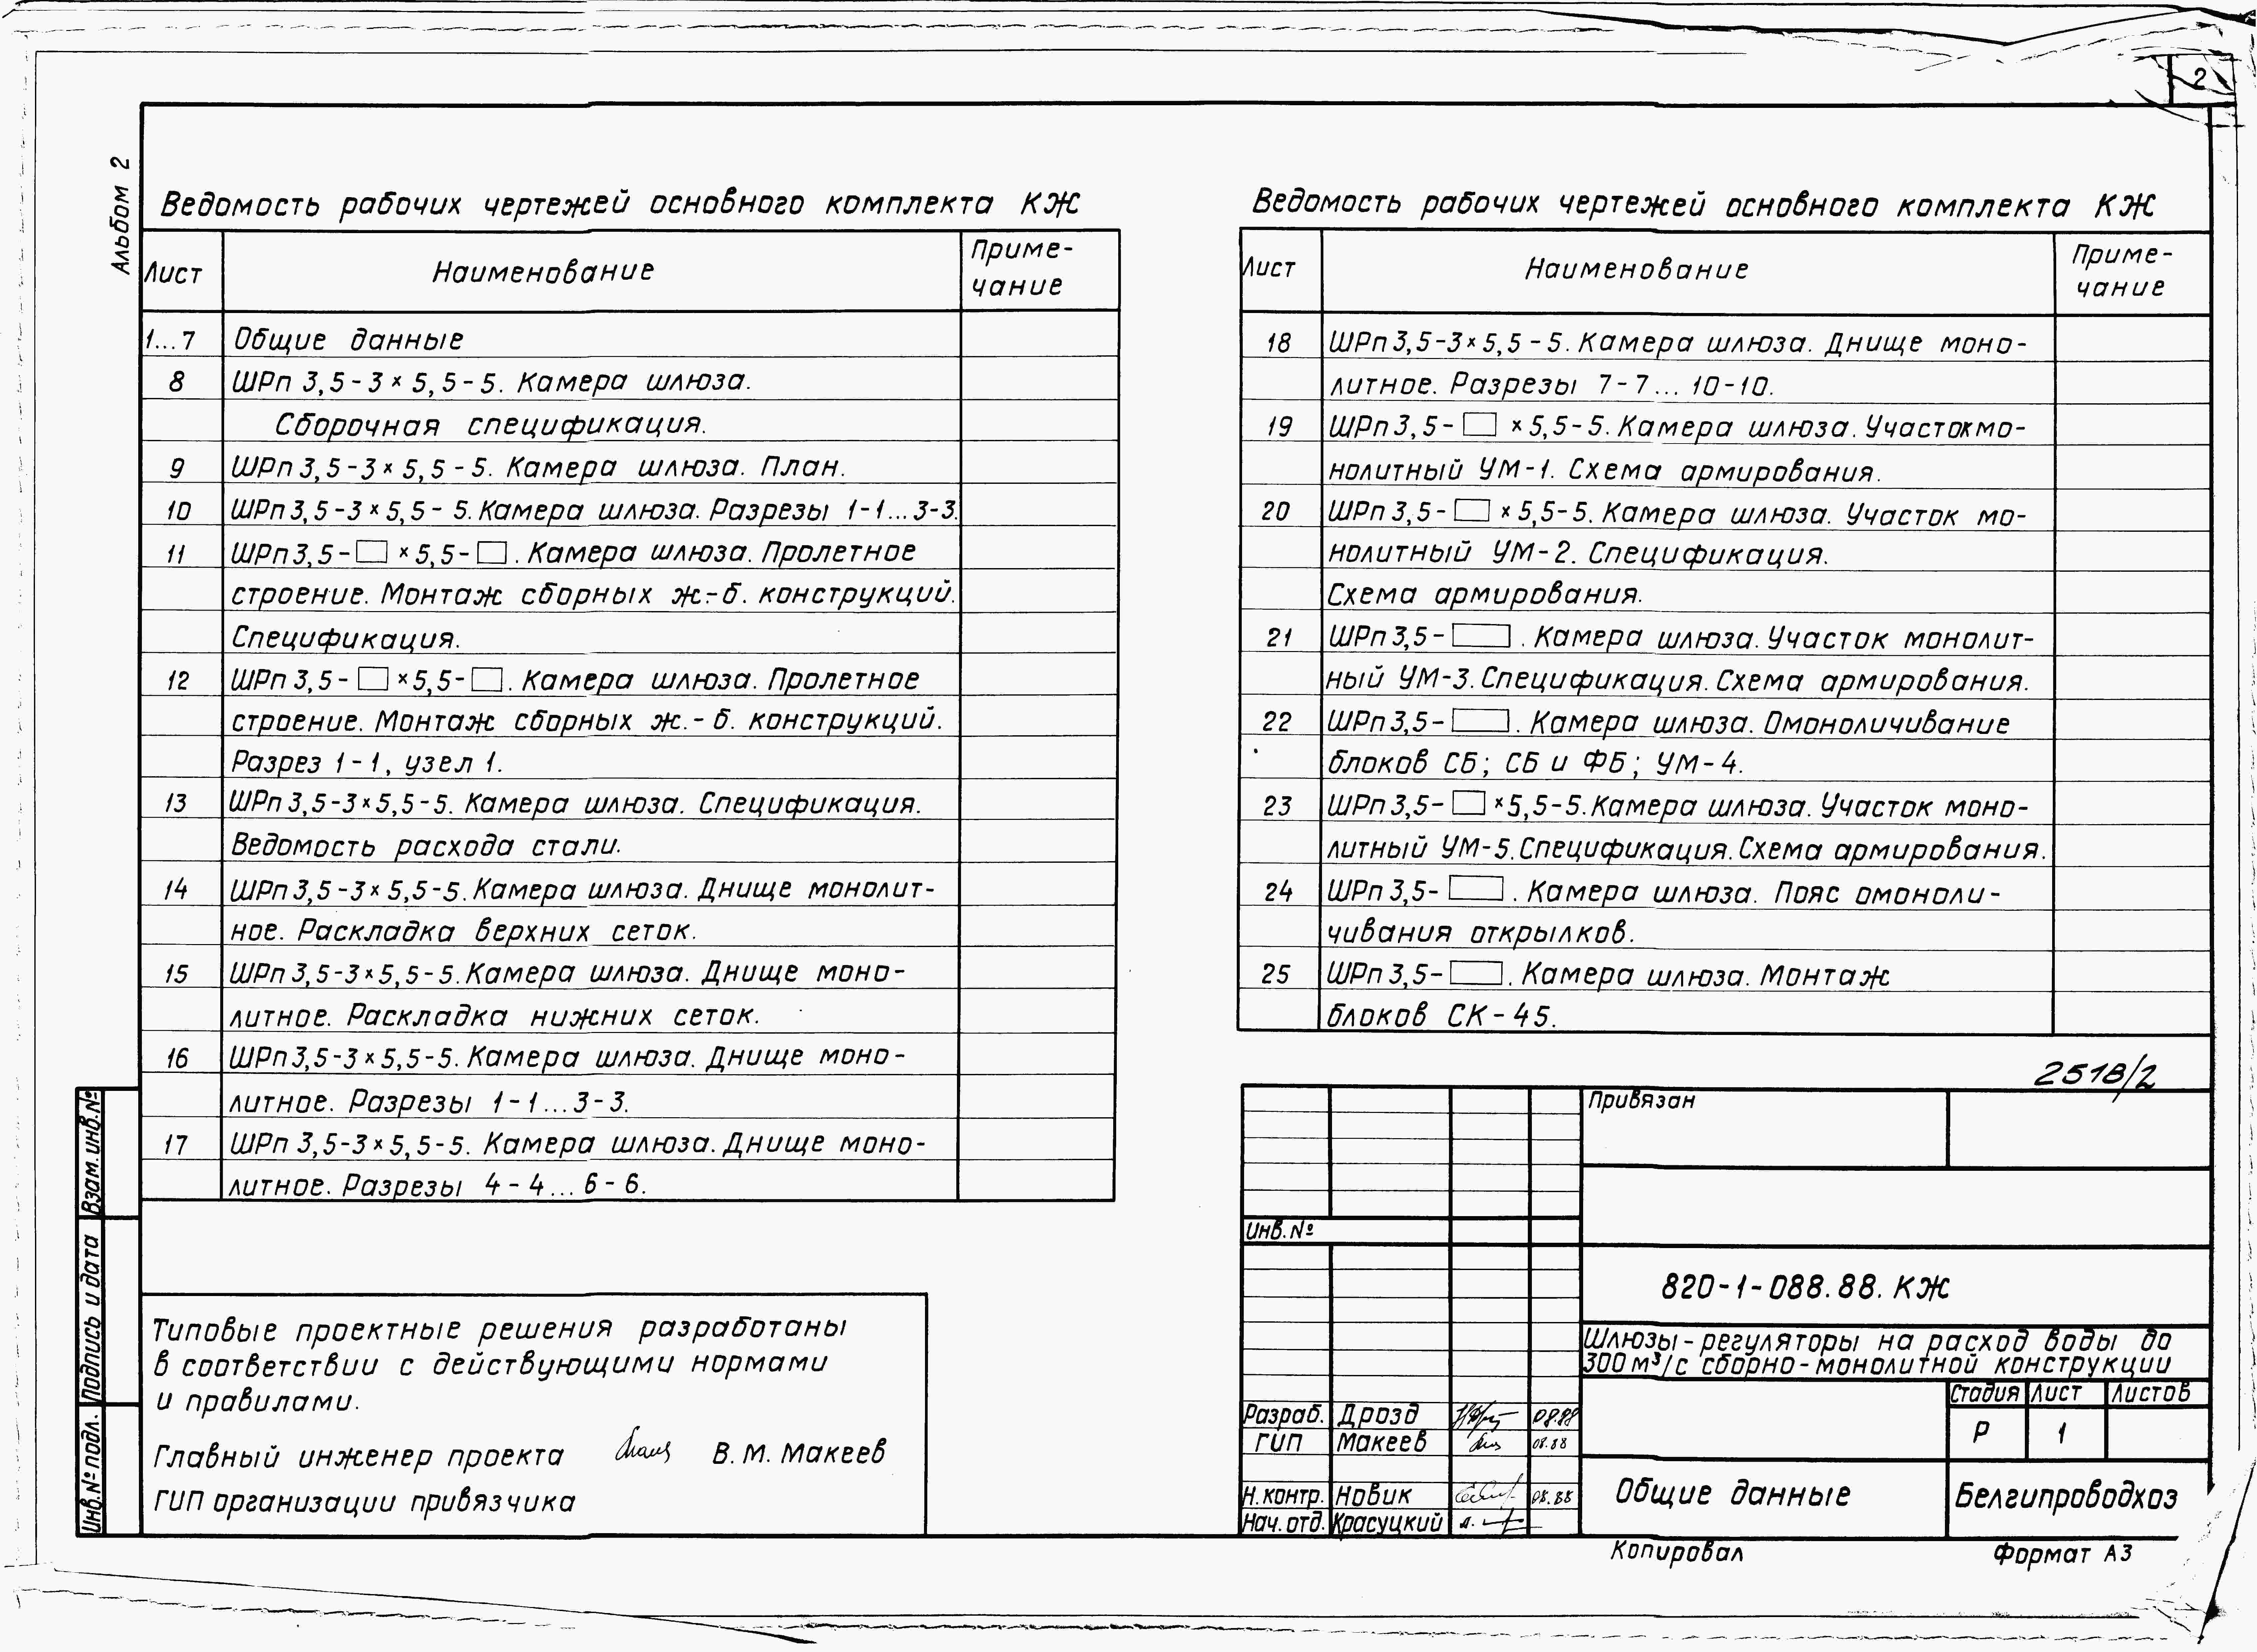 2
Альбом 2
Ведомость рабочих чертежей основного комплекта КЖ
Лист Наименование Приме-
чание
1...7 Общие данные
8 ШРп 3,5-3×5,5-5. Камера шлюза.
Сборочная спецификация.
9 ШРп 3,5-3×5,5-5. Камера шлюза. План.
10 ШРп 3,5-3×5,5-5. Камера шлюза. Разрезы 1-1...3-3.
11 ШРп 3,5-□×5,5-□. Камера шлюза. Пролетное
строение. Монтаж сборных ж.-б. конструкций.
Спецификация.
12 ШРп 3,5-□×5,5-□. Камера шлюза. Пролетное
строение. Монтаж сборных ж.-б. конструкций.
Разрез 1-1, узел 1.
13 ШРп 3,5-3×5,5-5. Камера шлюза. Спецификация.
Ведомость расхода стали.
14 ШРп 3,5-3×5,5-5. Камера шлюза. Днище монолит-
ное. Раскладка верхних сеток.
15 ШРп 3,5-3×5,5-5. Камера шлюза. Днище моно-
литное. Раскладка нижних сеток.
16 ШРп 3,5-3×5,5-5. Камера шлюза. Днище моно-
литное. Разрезы 1-1...3-3.
17 ШРп 3,5-3×5,5-5. Камера шлюза. Днище моно-
литное. Разрезы 4-4...6-6.
Ведомость рабочих чертежей основного комплекта КЖ
Лист Наименование Приме-
чание
18 ШРп 3,5-3×5,5-5. Камера шлюза. Днище моно-
литное. Разрезы 7-7...10-10.
19 ШРп 3,5-□×5,5-5. Камера шлюза. Участок мо-
нолитный УМ-1. Схема армирования.
20 ШРп 3,5-□×5,5-5. Камера шлюза. Участок мо-
нолитный УМ-2. Спецификация.
Схема армирования.
21 ШРп 3,5-□. Камера шлюза. Участок монолит-
ный УМ-3. Спецификация. Схема армирования.
22 ШРп 3,5-□. Камера шлюза. Омоноличивание
блоков СБ; СБ и ФБ; УМ-4.
23 ШРп 3,5-□×5,5-5. Камера шлюза. Участок моно-
литный УМ-5. Спецификация. Схема армирования.
24 ШРп 3,5-□. Камера шлюза. Пояс омоноли-
чивания открылков.
25 ШРп 3,5-□. Камера шлюза. Монтаж
блоков СК-45.
2518/2
Типовые проектные решения разработаны
в соответствии с действующими нормами
и правилами.
Главный инженер проекта В.М. Макеев
ГИП организации привязчика
Взам. инв. №
Подпись и дата
Инв. № подл.
Привязан
Инв. №
820-1-088.88. КЖ
Шлюзы-регуляторы на расход воды до
300 м³/с сборно-монолитной конструкции
Стадия Лист Листов
Р 1
Разраб. Дрозд 08.88
ГИП Макеев 08.88
Н. контр. Новик 08.88
Нач. отд. Красуцкий
Общие данные
Белгипроводхоз
Копировал Формат А3